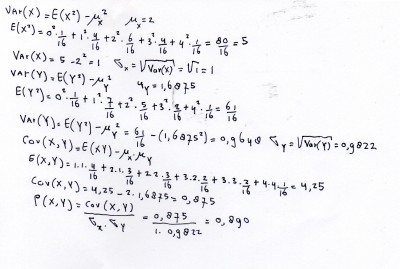 Var(X) = E(X²) - μ²ₓ    μₓ = 2
E(X²) = 0²·1/16 + 1²·4/16 + 2²·6/16 + 3²·4/16 + 4²·1/16 = 80/16 = 5
Var(X) = 5 - 2² = 1    σₓ = √Var(X) = √1 = 1
Var(Y) = E(Y²) - μ²_Y    μ_Y = 1,6875
E(Y²) = 0²·1/16 + 1²·7/16 + 2²·5/16 + 3²·2/16 + 4²·1/16 = 61/16
Var(Y) = E(Y²) - μ²_Y = 61/16 - (1,6875²) = 0,9648    σ_Y = √Var(Y) = 0,9822
Cov(X,Y) = E(XY) - μₓ·μ_Y
E(X,Y) = 1·1·4/16 + 2·1·3/16 + 2·2·3/16 + 3·2·2/16 + 3·3·2/16 + 4·4·1/16 = 4,25
Cov(X,Y) = 4,25 - 2·1,6875 = 0,875
ρ(X,Y) = Cov(X,Y)/σₓ·σ_Y = 0,875/1·0,9822 = 0,890